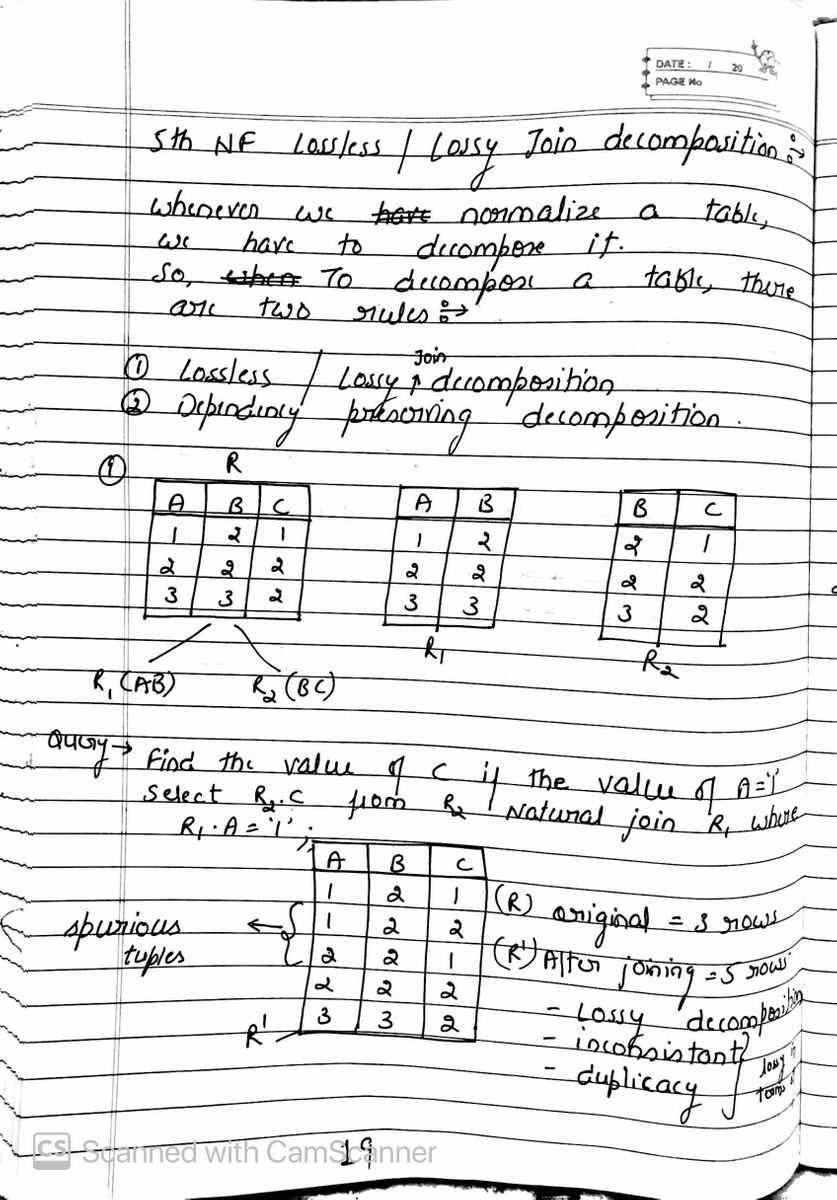 DATE: / 20
PAGE No
5th NF Lossless / Lossy Join decomposition
whenever we have normalize a table,
we have to decompose it.
So, when To decompose a table, there
are two rules
① Lossless / Lossy Join decomposition
② Dependency preserving decomposition.
① R
A B C
1 2 1
2 2 2
3 3 2
A B
1 2
2 2
3 3
R1
B C
2 1
2 2
3 2
R2
R1 (AB) R2 (BC)
Query → Find the value of C if the value of A='1'
Select R2.C from R2 Natural join R1 where
R1.A = '1';
A B C
1 2 1
1 2 2
2 2 1
2 2 2
3 3 2
spurious
tuples
R'
(R) original = 3 rows
(R') After joining = 5 rows
- Lossy decomposition
- inconsistant
- duplicacy
lossy in
terms of
19
CS Scanned with CamScanner